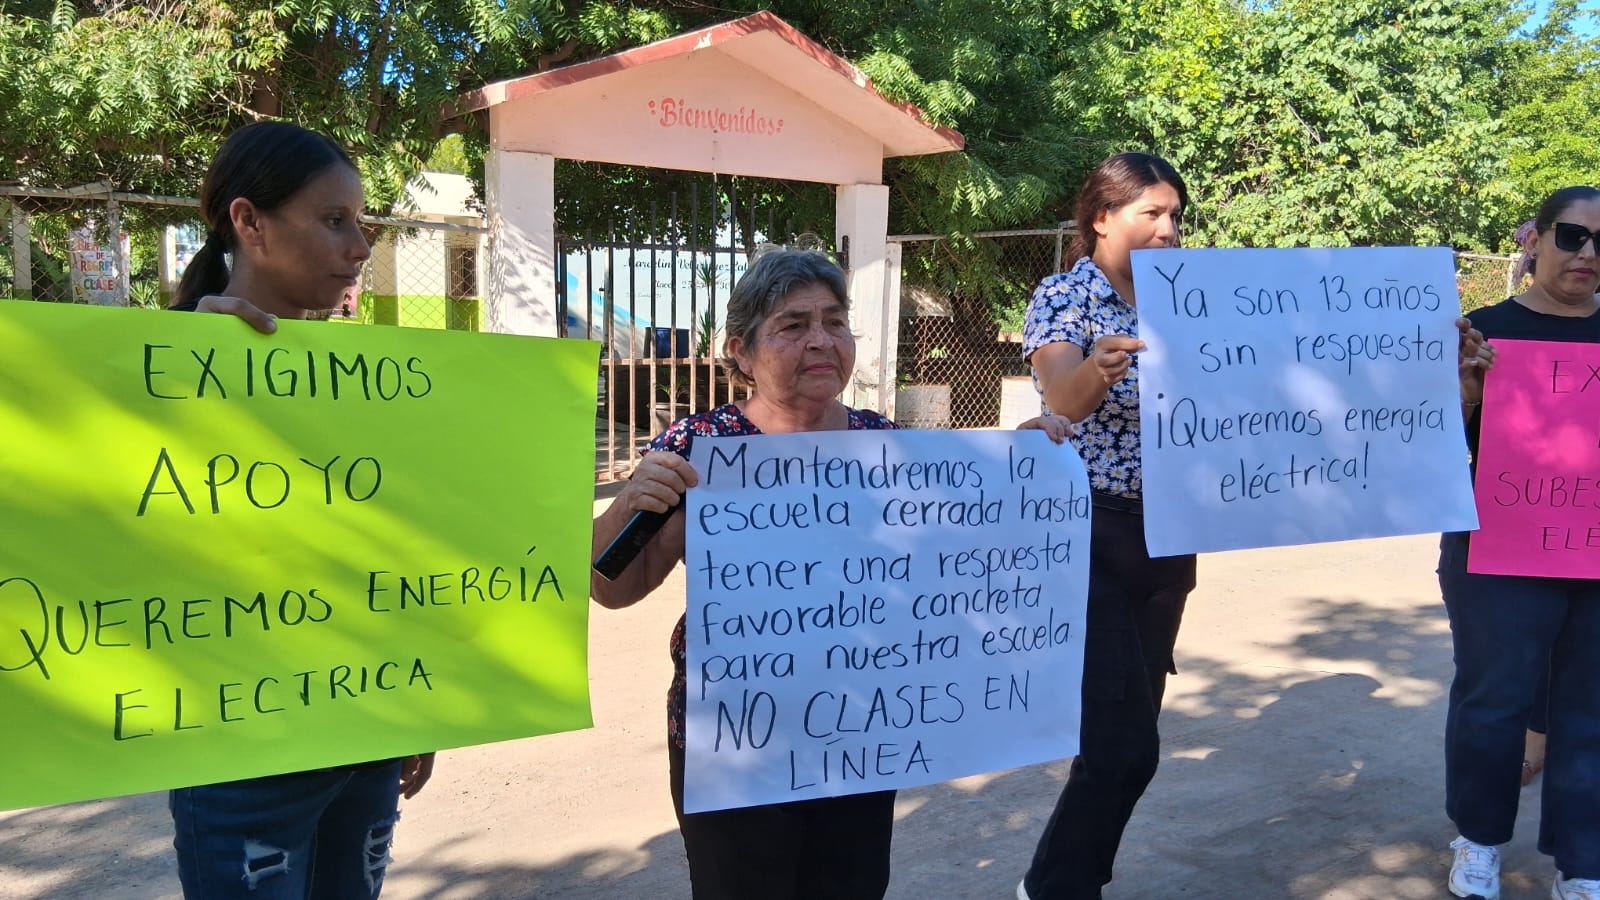 Bienvenidos
BIENVE
DE
REGRE
CLASE
EXIGIMOS
APOYO
QUEREMOS ENERGÍA
ELECTRICA
Mantendremos la
escuela cerrada hasta
tener una respuesta
favorable concreta
para nuestra escuela.
NO CLASES EN
LÍNEA
Ya son 13 años
sin respuesta
¡Queremos energía
eléctrica!
EX
SUBES
ELÉ